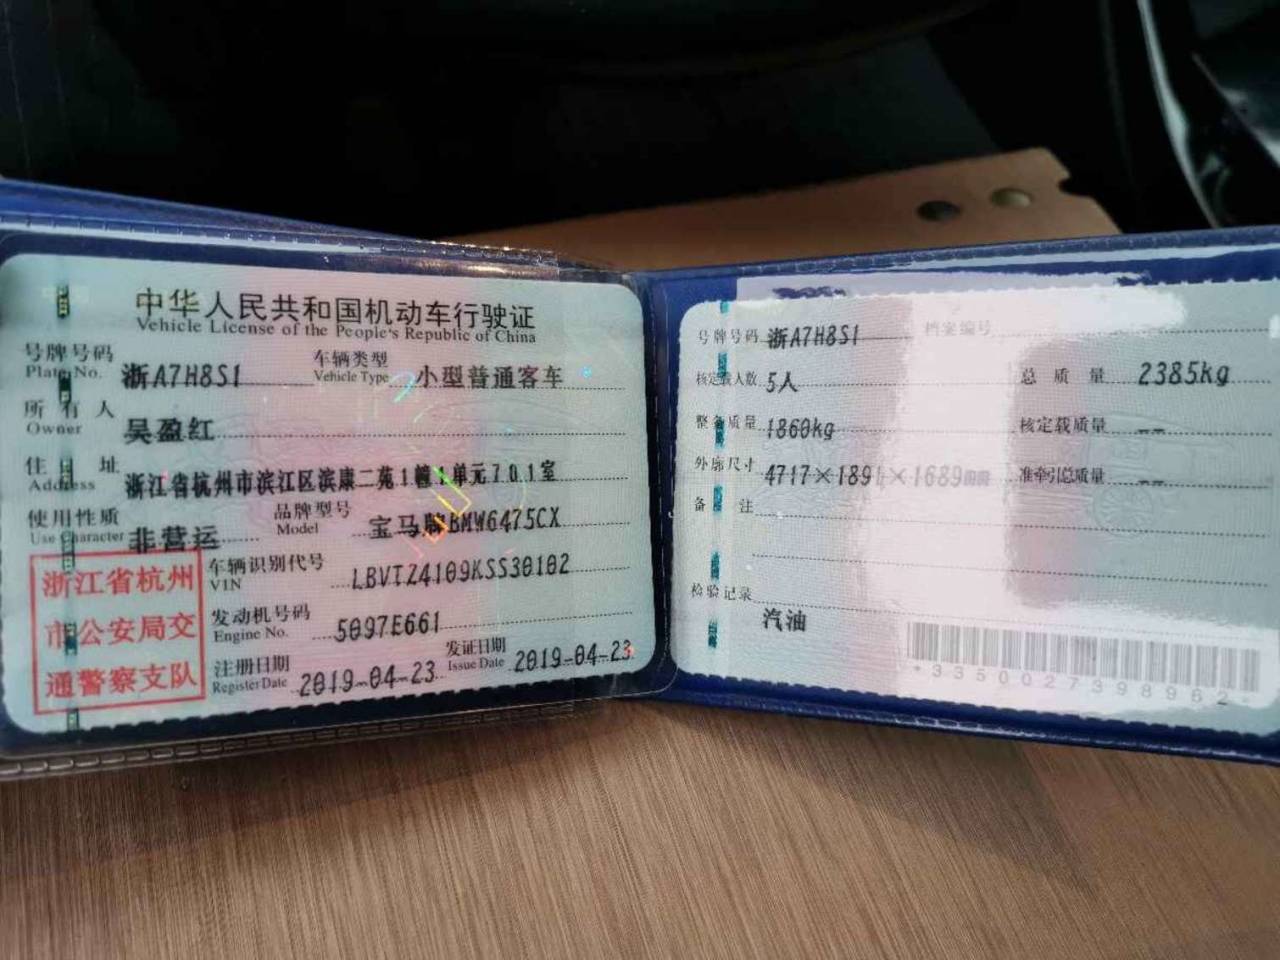 中华人民共和国机动车行驶证
Vehicle License of the People's Republic of China
号牌号码 浙A7H8S1 车辆类型 小型普通客车
Plate No. Vehicle Type
所有人 吴盈红
Owner
住址 浙江省杭州市滨江区滨康二苑1幢1单元701室
Address
使用性质 非营运 品牌型号 宝马牌BMW6475CX
Use Character Model
浙江省杭州
市公安局交
通警察支队
车辆识别代号 LBVTZ4109KSS30102
VIN
发动机号码 5097E661
Engine No.
注册日期 2019-04-23 发证日期 2019-04-23
Register Date Issue Date
号牌号码 浙A7H8S1 档案编号
核定载人数 5人 总质量 2385kg
整备质量 1860kg 核定载质量 --
外廓尺寸 4717×1891×1689mm 准牵引总质量 --
备注
检验记录
汽油
*3350027398962*